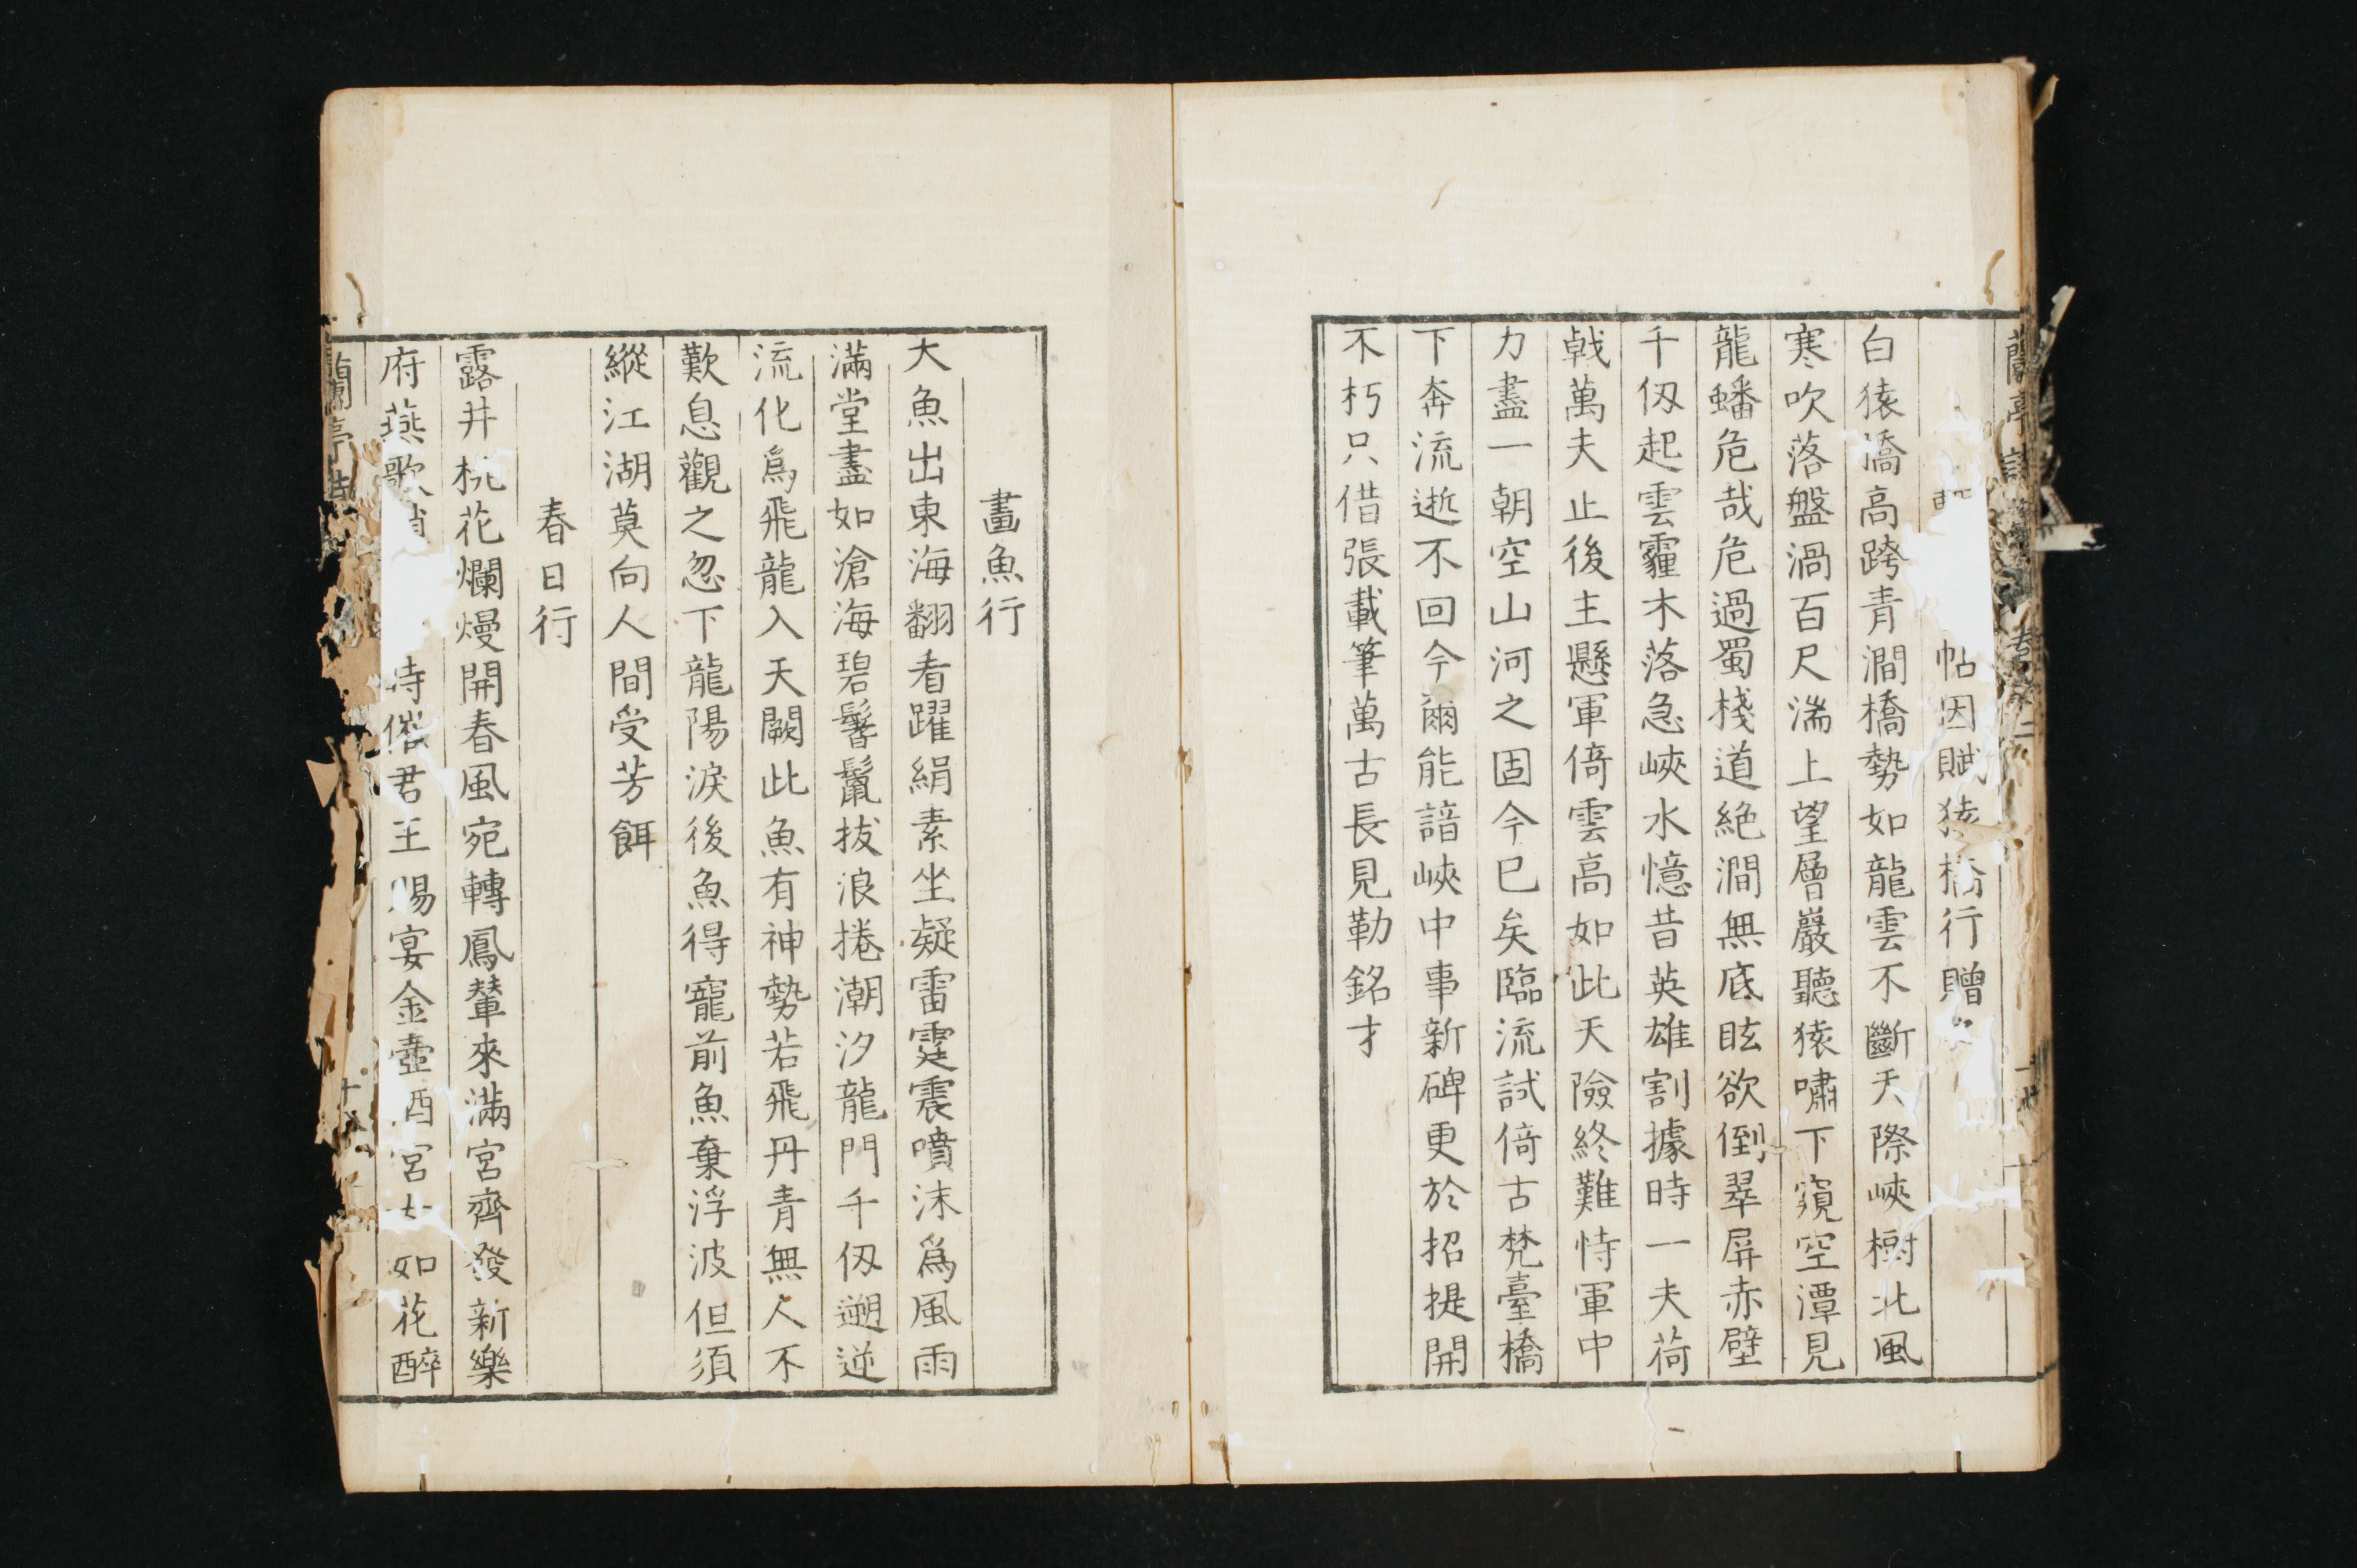 帖因賦猿橋行贈
白猿橋高跨青澗橋勢如龍雲不斷天際峽樹北風
寒吹落盤渦百尺湍上望層巖聽猿嘯下窺空潭見
龍蟠危哉危過蜀棧道絶澗無底眩欲倒翠屏赤壁
千仭起雲霾木落急峽水憶昔英雄割據時一夫荷
戟萬夫止後主懸軍倚雲高如此天險終難恃軍中
力盡一朝空山河之固今已矣臨流試倚古梵臺橋
下奔流逝不回今爾能諳峽中事新碑更於招提開
不朽只借張載筆萬古長見勒銘才
畫魚行
大魚出東海翻看躍絹素坐疑雷霆震噴沫爲風雨
滿堂盡如滄海碧鬐鬣拔浪捲潮汐龍門千仭遡逆
流化爲飛龍入天闕此魚有神勢若飛丹青無人不
歎息觀之忽下龍陽淚後魚得寵前魚棄浮波但須
縱江湖莫向人間受芳餌
春日行
露井桃花爛熳開春風宛轉鳳輦來滿宮齊發新樂
府燕歌時催君王賜宴金壺酒宮女如花醉
蘭亭